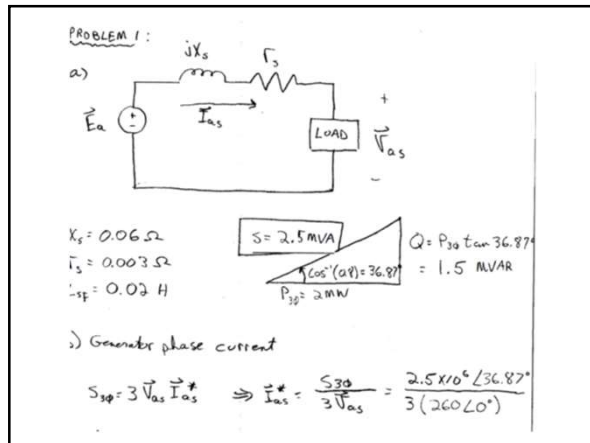 PROBLEM 1:
a)
jXₛ
rₛ
I⃗ₐₛ
E⃗ₐ
+
−
+
LOAD
V⃗ₐₛ
−
Xₛ = 0.06 Ω
rₛ = 0.003 Ω
sf = 0.02 H
S = 2.5 MVA
cos⁻¹(0.8) = 36.87°
P₃φ = 2 MW
Q = P₃φ tan 36.87°
= 1.5 MVAR
) Generator phase current
S₃φ = 3 V⃗ₐₛ I⃗ₐₛ* ⇒ I⃗ₐₛ* = S₃φ / 3V⃗ₐₛ = 2.5 x 10⁶ ∠36.87° / 3(260∠0°)